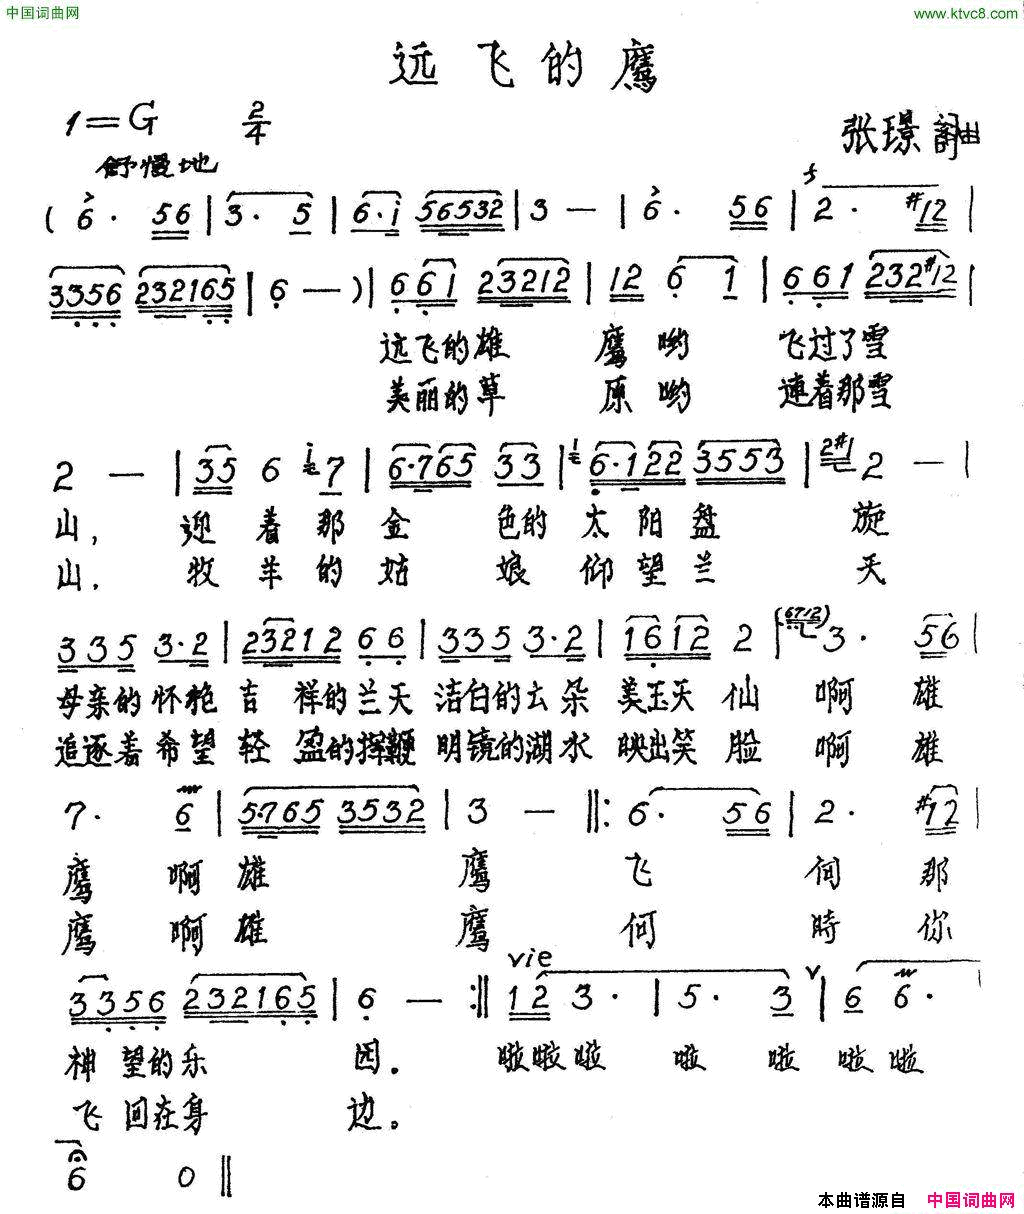 中国词曲网
www.ktvc8.com
远飞的鹰
1=G 2/4
张璟 詞曲
舒慢地
( 6· 56 | 3· 5 | 6·i 56532 | 3 — | 6· 56 | 2· #12 |
3356 232165 | 6 — ) | 661 23212 | 12 6 1 | 661 232#12 |
远飞的雄 鹰哟 飞过了雪
美丽的草 原哟 連着那雪
2 — | 35 6 i 7 | 6·765 33 | 1 6·122 3553 | 2#1 2 — |
山, 迎着那金 色的太阳盘 旋
山. 牧羊的姑 娘仰望兰 天
335 3·2 | 23212 66 | 335 3·2 | 1612 2 | (6712) 3· 56 |
母亲的怀抱吉 祥的兰天 洁白的云朵 美玉天仙 啊雄
追逐着希望轻 盈的挥鞭 明镜的湖水 映出笑脸 啊雄
7· 6 | 5·765 3532 | 3 — ‖: 6· 56 | 2· #12 |
鹰 啊雄 鹰 飞 向那
鹰 啊雄 鹰 何 時你
vie
3356 232165 | 6 — :‖ 12 3· | 5· 3 | 6 6· |
神望的乐 园. 啦啦啦 啦 啦 啦啦
飞回在身 边.
6 0 ‖
本曲谱源自 中国词曲网